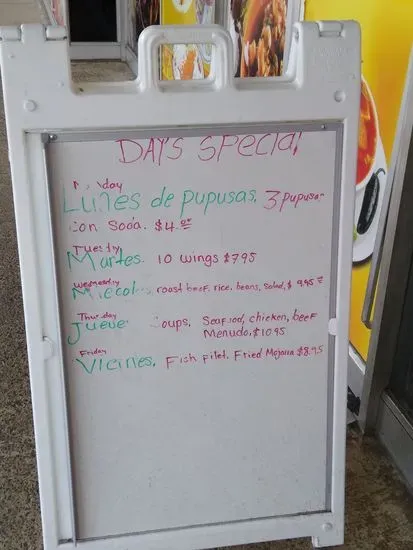 DAYS SpeciaL
Lunes de pupusas. 3 pupusas
con Soda. $4.00
Tuesday
Martes. 10 wings $7.95
Wednesday
roast beef. rice, beans, Salad, $ 9.95
Thursday
Jueve Soups, Seafood, chicken, beef
Menudo, $10.95
Friday
Fish Filet. Fried Mojarra $8.95